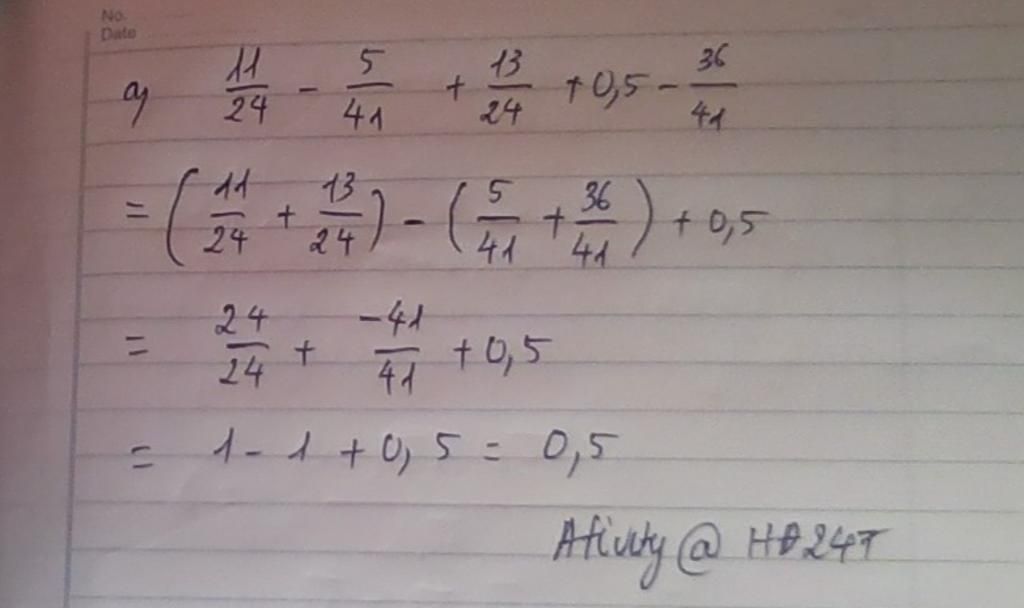 No.
Date
a) 11/24 - 5/41 + 13/24 + 0,5 - 36/41
= (11/24 + 13/24) - (5/41 + 36/41) + 0,5
= 24/24 + -41/41 + 0,5
= 1 - 1 + 0,5 = 0,5
@